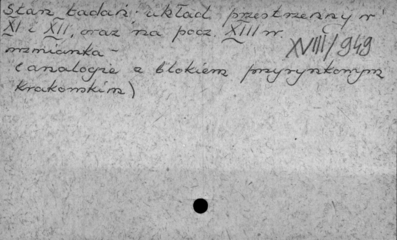 stan badań: układ przestrzenny w
XI i XII, oraz na pocz. XIII w.
XVIII/949
wzmianka -
(analogie z blokiem przyrynkowym
krakowskim)